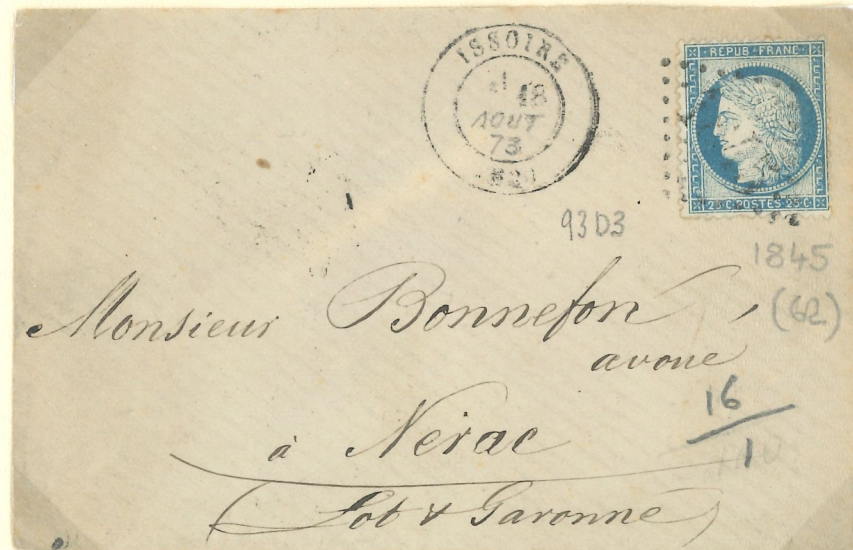 ISSOIRE
18
AOUT
73
(62)
REPUB · FRANC
25 C POSTES 25 C
93D3
1845
(62)
Monsieur Bonnefon
avoué
à Nérac
(Lot & Garonne)
16
1